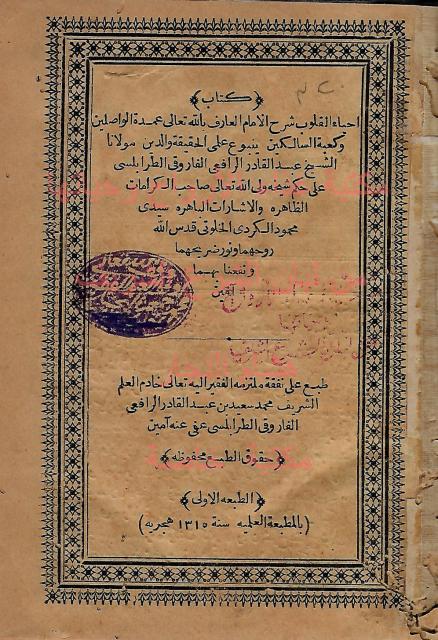 ﴿كتاب﴾
احياء القلوب شرح الامام العارف بالله تعالى عمدة الواصلين
وكعبة السالكين ينبوع علمي الحقيقة والدين مولانا
الشيخ عبد القادر الرافعي الفاروقي الطرابلسي
على حكم شيخه ولي الله تعالى صاحب الكرامات
الظاهره والاشارات الباهره سيدي
محمود الكردي الخلوتي قدس الله
روحهما ونور ضريحهما
ونفعنا بهما
آمين
طبع على نفقة ملتزمه الفقير اليه تعالى خادم العلم
الشريف محمد سعيد بن عبد القادر الرافعي
الفاروقي الطرابلسي عفي عنه آمين
﴿حقوق الطبع محفوظه﴾
﴿الطبعه الاولى﴾
(بالمطبعة العلميه سنة ١٣١٥ هجريه)